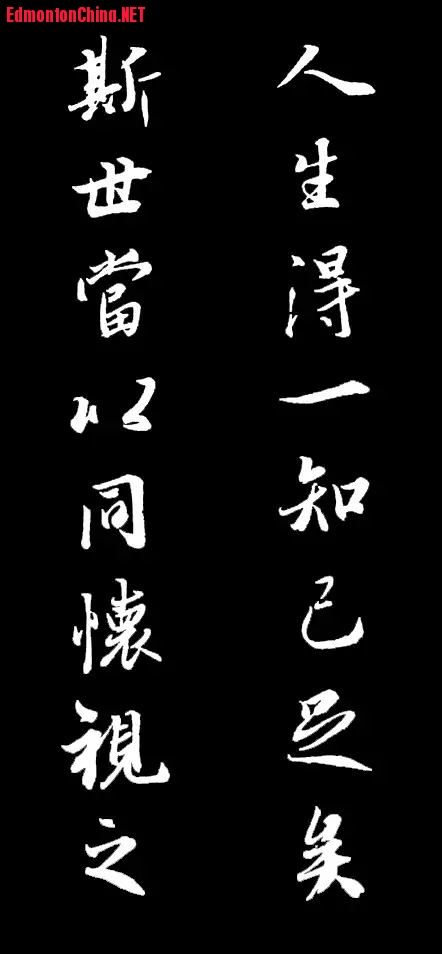 EdmontonChina.NET
人生得一知己足矣
斯世當以同懷視之